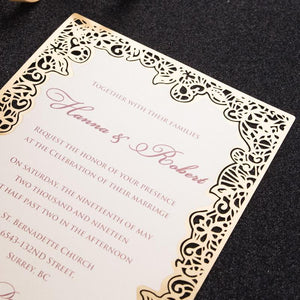 Together with their families
Hanna & Robert
Request the honor of your presence
at the Celebration of their marriage
On Saturday, the nineteenth of
Two thousand and nineteen
at half past two in the afternoon
St. Bernadette Church
6543-132nd Street
Surrey, BC